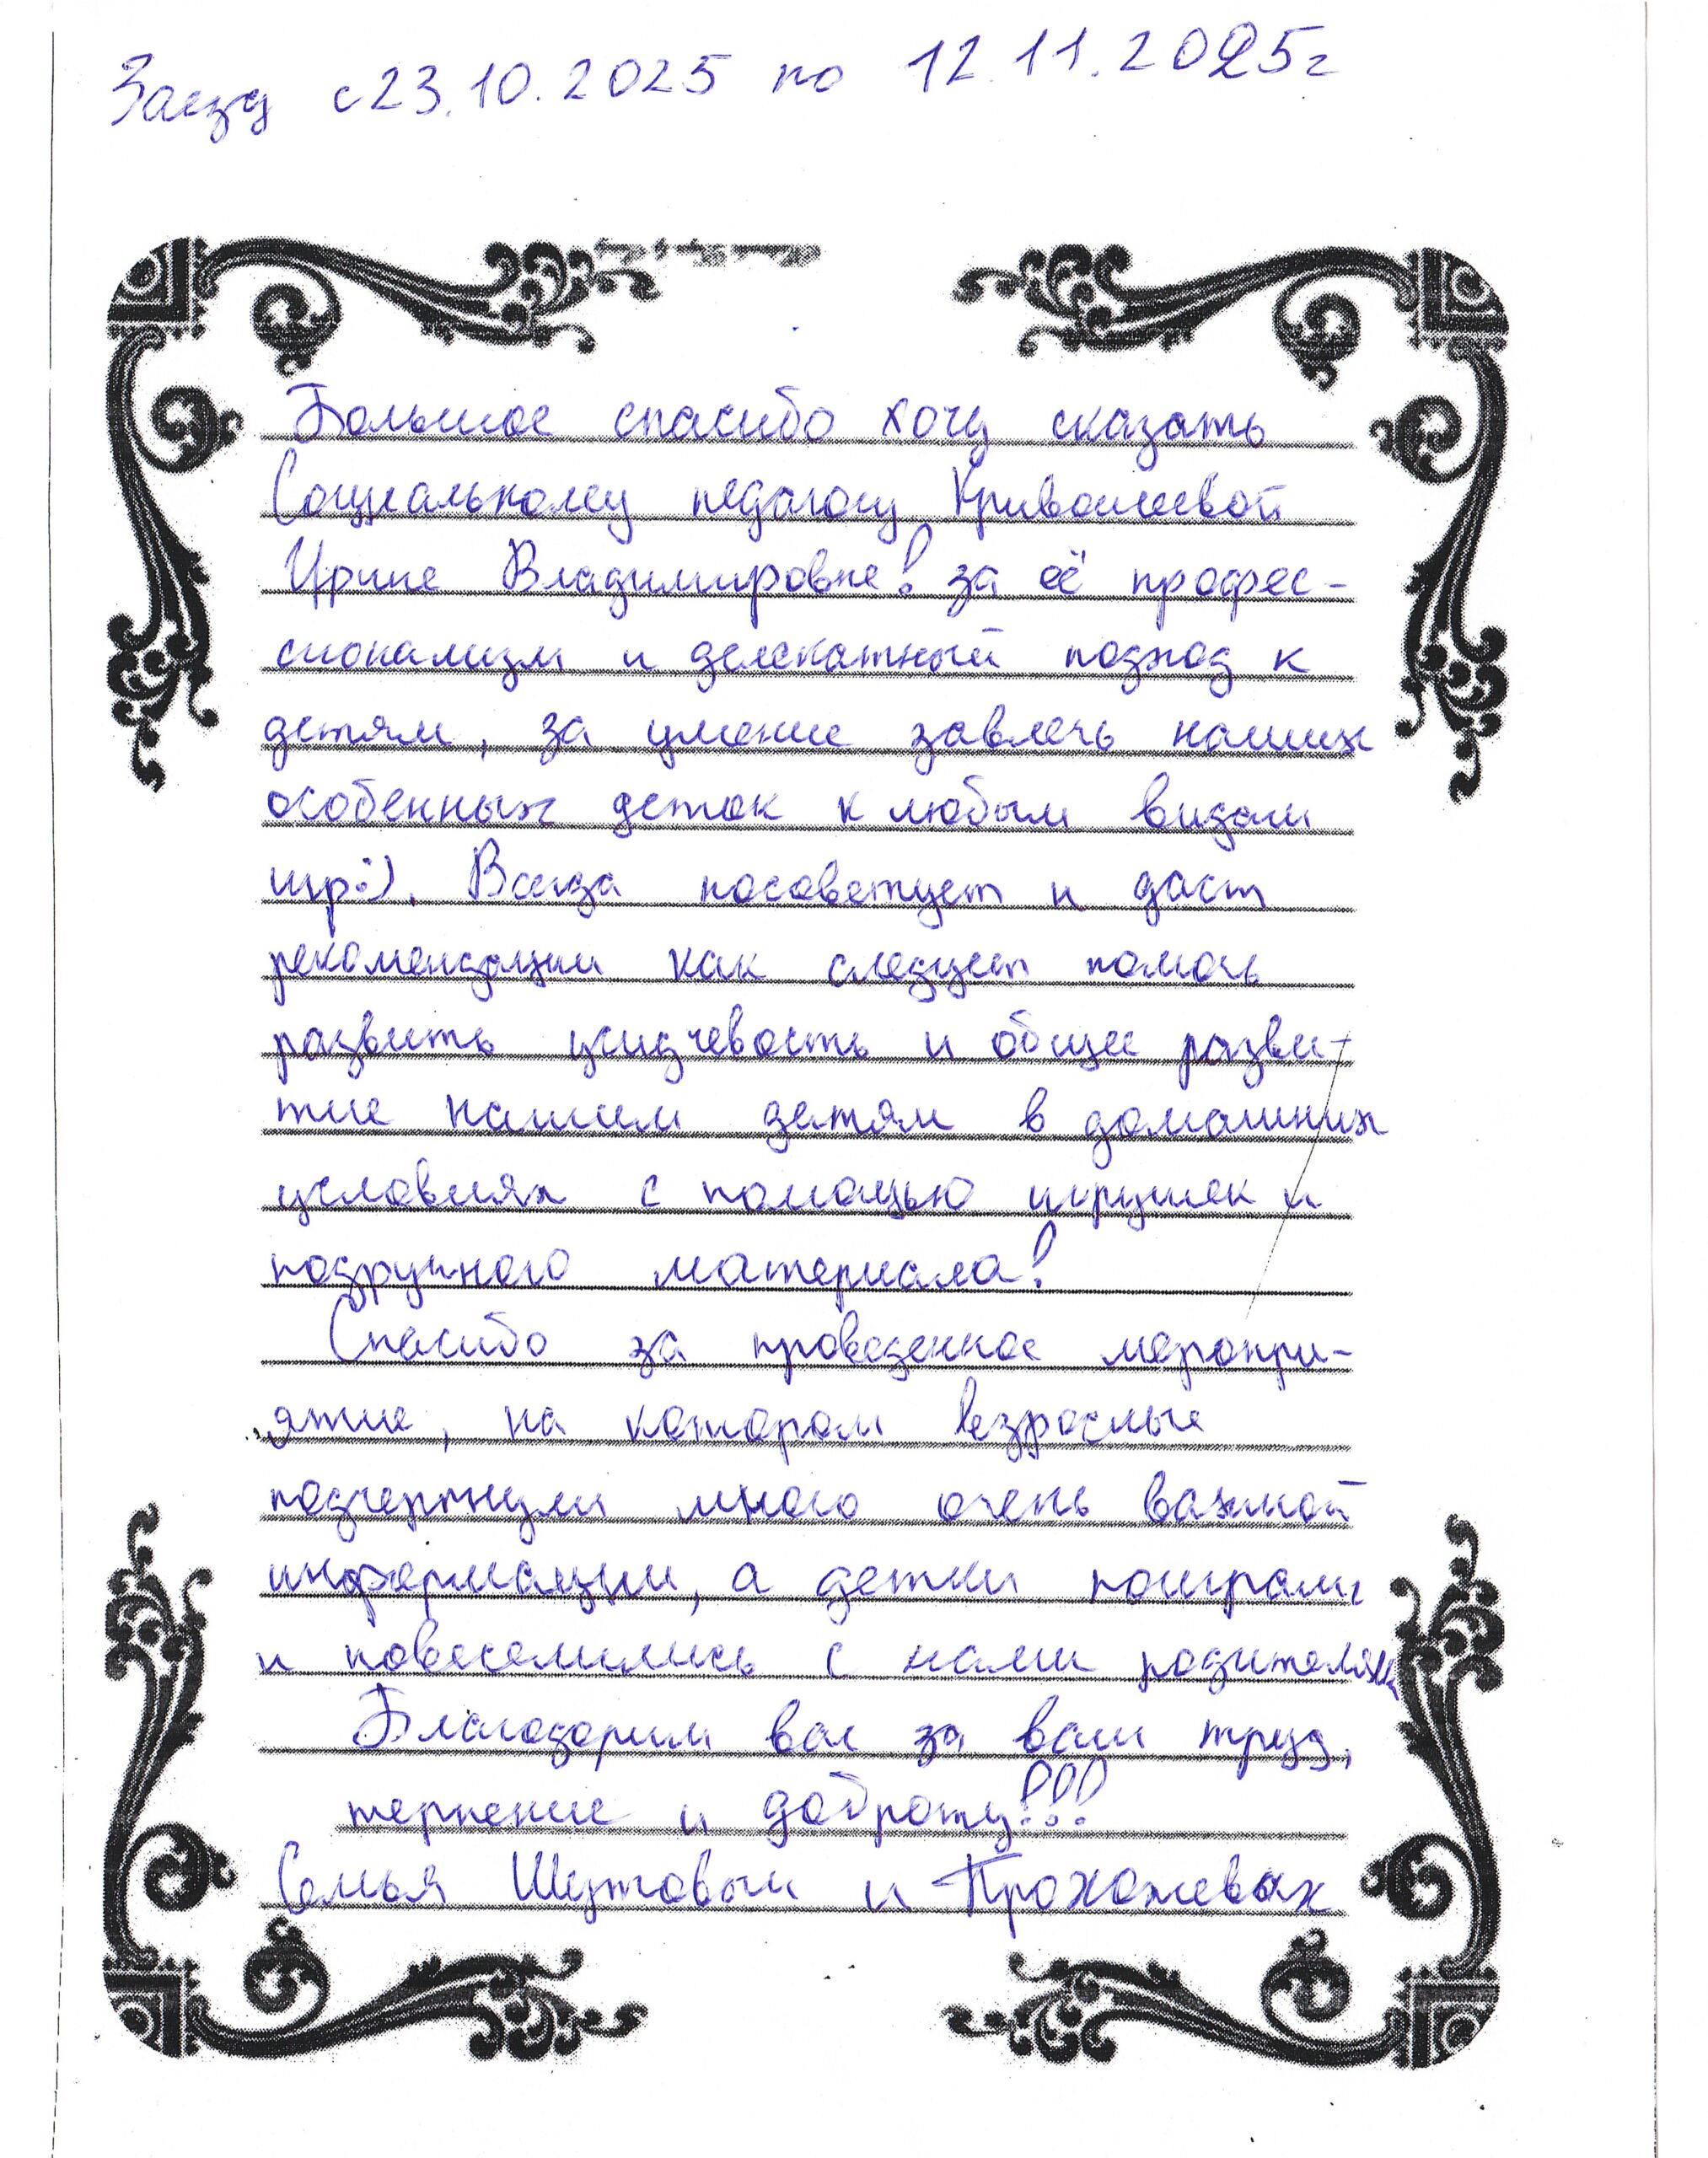 Заезд с 23.10.2025 по 12.11.2025г
Большое спасибо хочу сказать
Социальному педагогу Кривошеевой
Ирине Владимировне! за её профес-
сионализм и деликатный подход к
детям, за умение завлечь наших
особенных деток к любым видам
игр:). Всегда посоветует и даст
рекомендации как следует помочь
развить усидчевость и общее разви-
тие нашим детям в домашних
условиях с помощью игрушек и
подручного материала!
Спасибо за проведенное меропри-
ятие, на котором взрослые
подчерпнули много очень важной
информации, а детки поиграли
и повеселились с нами родителями
Благодарим вас за ваш труд,
терпение и доброту!!!
Семья Шутовых и Прохожевых